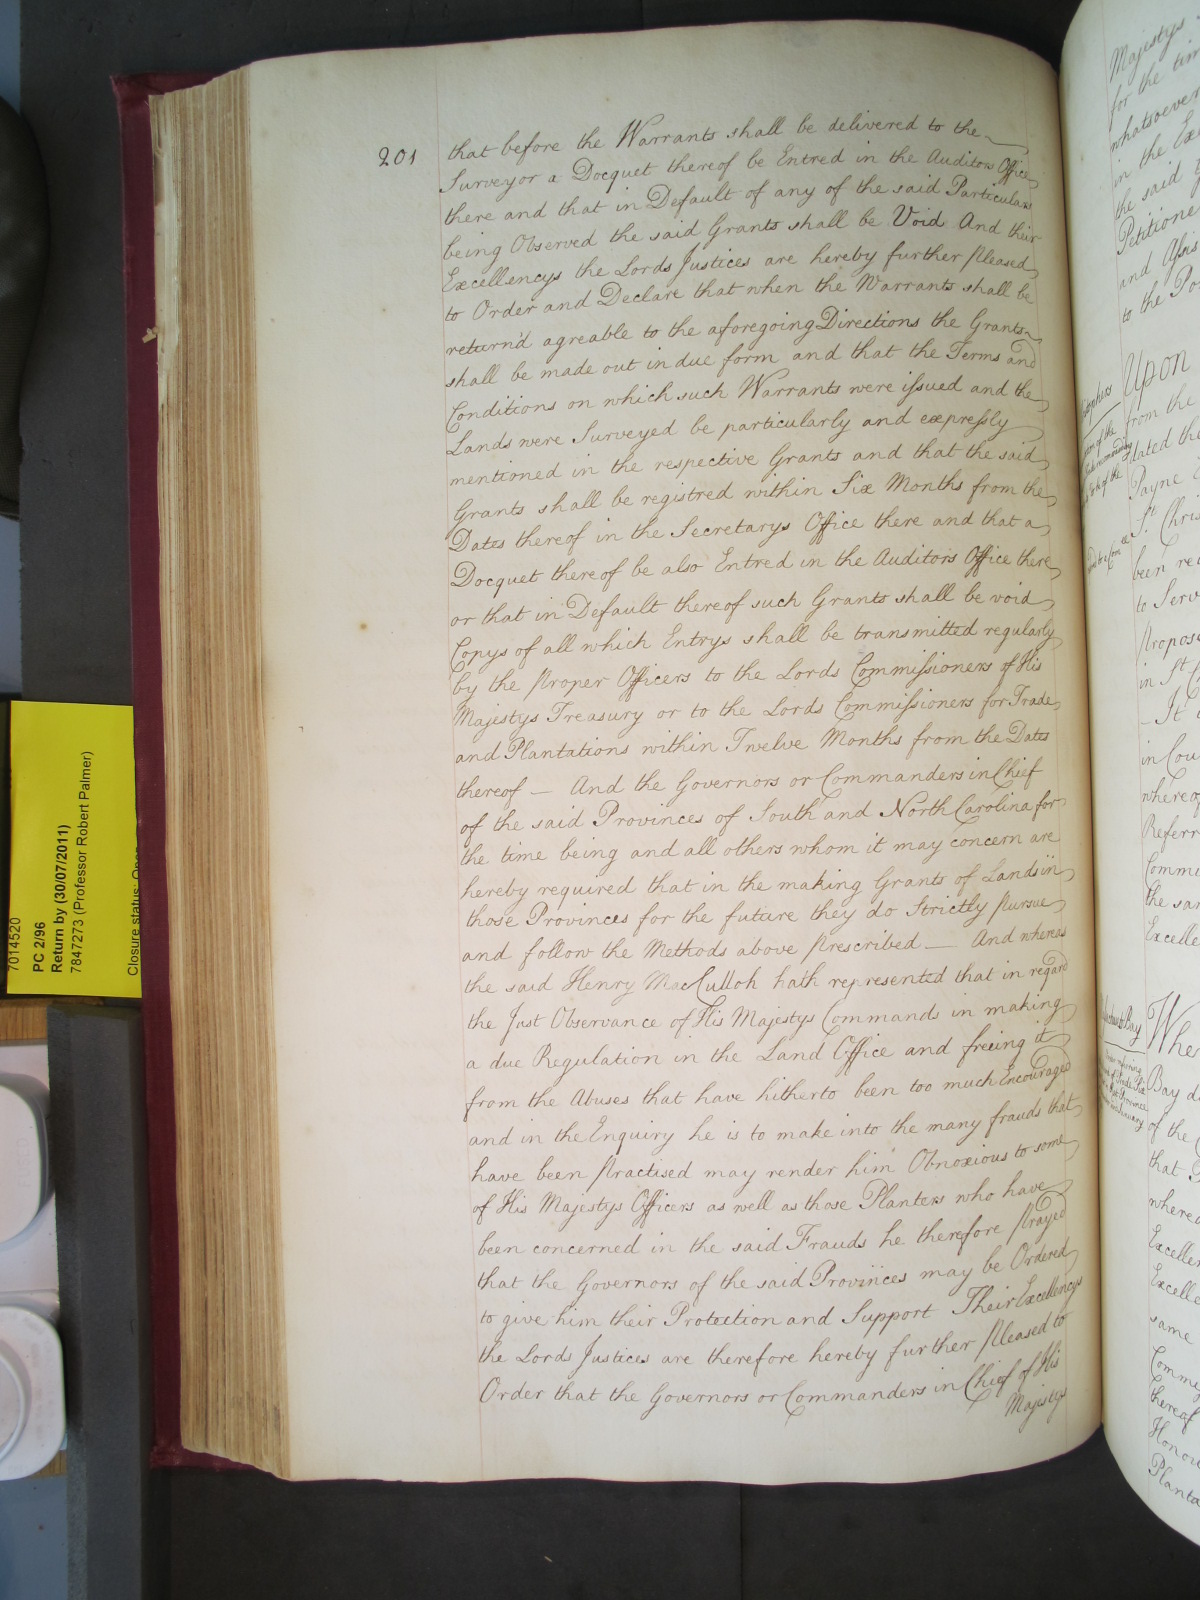 201
that before the Warrants shall be delivered to the
Surveyor a Docquet thereof be Entred in the Auditors Office
there and that in Default of any of the said Particulars
being Observed the said Grants shall be Void And their
Excellencys the Lords Justices are hereby further pleased
to Order and Declare that when the Warrants shall be
return'd agreable to the aforegoing Directions the Grants
shall be made out in due form and that the Terms and
Conditions on which such Warrants were issued and the
Lands were Surveyed be particularly and expressly
mentioned in the respective Grants and that the said
Grants shall be registred within Six Months from the
Dates thereof in the Secretarys Office there and that a
Docquet thereof be also Entred in the Auditors Office there
or that in Default thereof such Grants shall be void
Copys of all which Entrys shall be transmitted regularly
by the proper Officers to the Lords Commissioners of His
Majestys Treasury or to the Lords Commissioners for Trade
and Plantations within Twelve Months from the Dates
thereof — And the Governors or Commanders in Chief
of the said Provinces of South and North Carolina for
the time being and all others whom it may concern are
hereby required that in the making Grants of Lands in
those Provinces for the future they do Strictly pursue
and follow the Methods above prescribed — And whereas
the said Henry MacCulloh hath represented that in regard
the Just Observance of His Majestys Commands in making
a due Regulation in the Land Office and freeing it
from the Abuses that have hitherto been too much Encouraged
and in the Enquiry he is to make into the many frauds that
have been practised may render him Obnoxious to some
of His Majestys Officers as well as those Planters who have
been concerned in the said Frauds he therefore prayed
that the Governors of the said Provinces may be Ordered
to give him their Protection and Support Their Excellencys
the Lords Justices are therefore hereby further pleased to
Order that the Governors or Commanders in Chief of His
Majestys
7014520
PC 2/96
Return by (30/07/2011)
7847273 (Professor Robert Palmer)
Closure status: Open
Majestys
for the tim
whatsoever
in the Ex
the said
Petitione
and Assis
to the Po
Upon
from the
dated the
Payne
St. Chris
been re
to Serv
propos
in St.
It
in Cou
whereof
Referr
Commi
the sam
Excelle
Whe
Bay d
of the
that
where
Excellen
Excelle
same
Comm
thereof
Honou
Planta